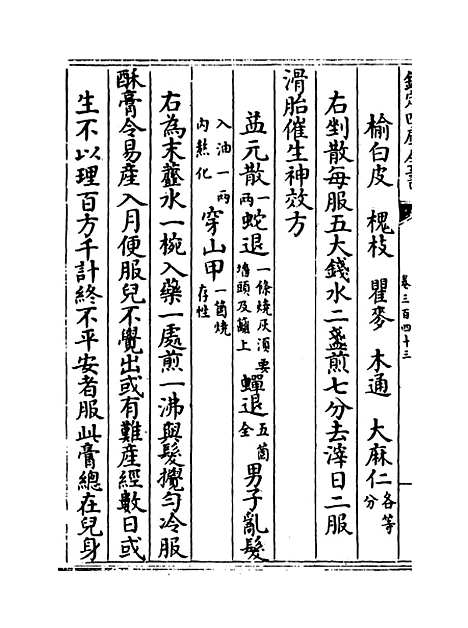 欽定四庫全書
卷三百四十三
榆白皮 槐枝 瞿麥 木通 大麻仁各等分
右剉散每服五大錢水二盞煎七分去滓日二服
滑胎催生神效方
益元散一兩 蛇退一條燒灰須要墻頭及籬上 蟬退五箇全 男子亂髮
入油一兩內熬化 穿山甲一箇燒存性
右為末虀水一椀入藥一處煎一沸與髮攪勻冷服
酥膏令易產入月便服兒不覺出或有難產經數日或
生不以理百方千計終不平安者服此膏總在兒身